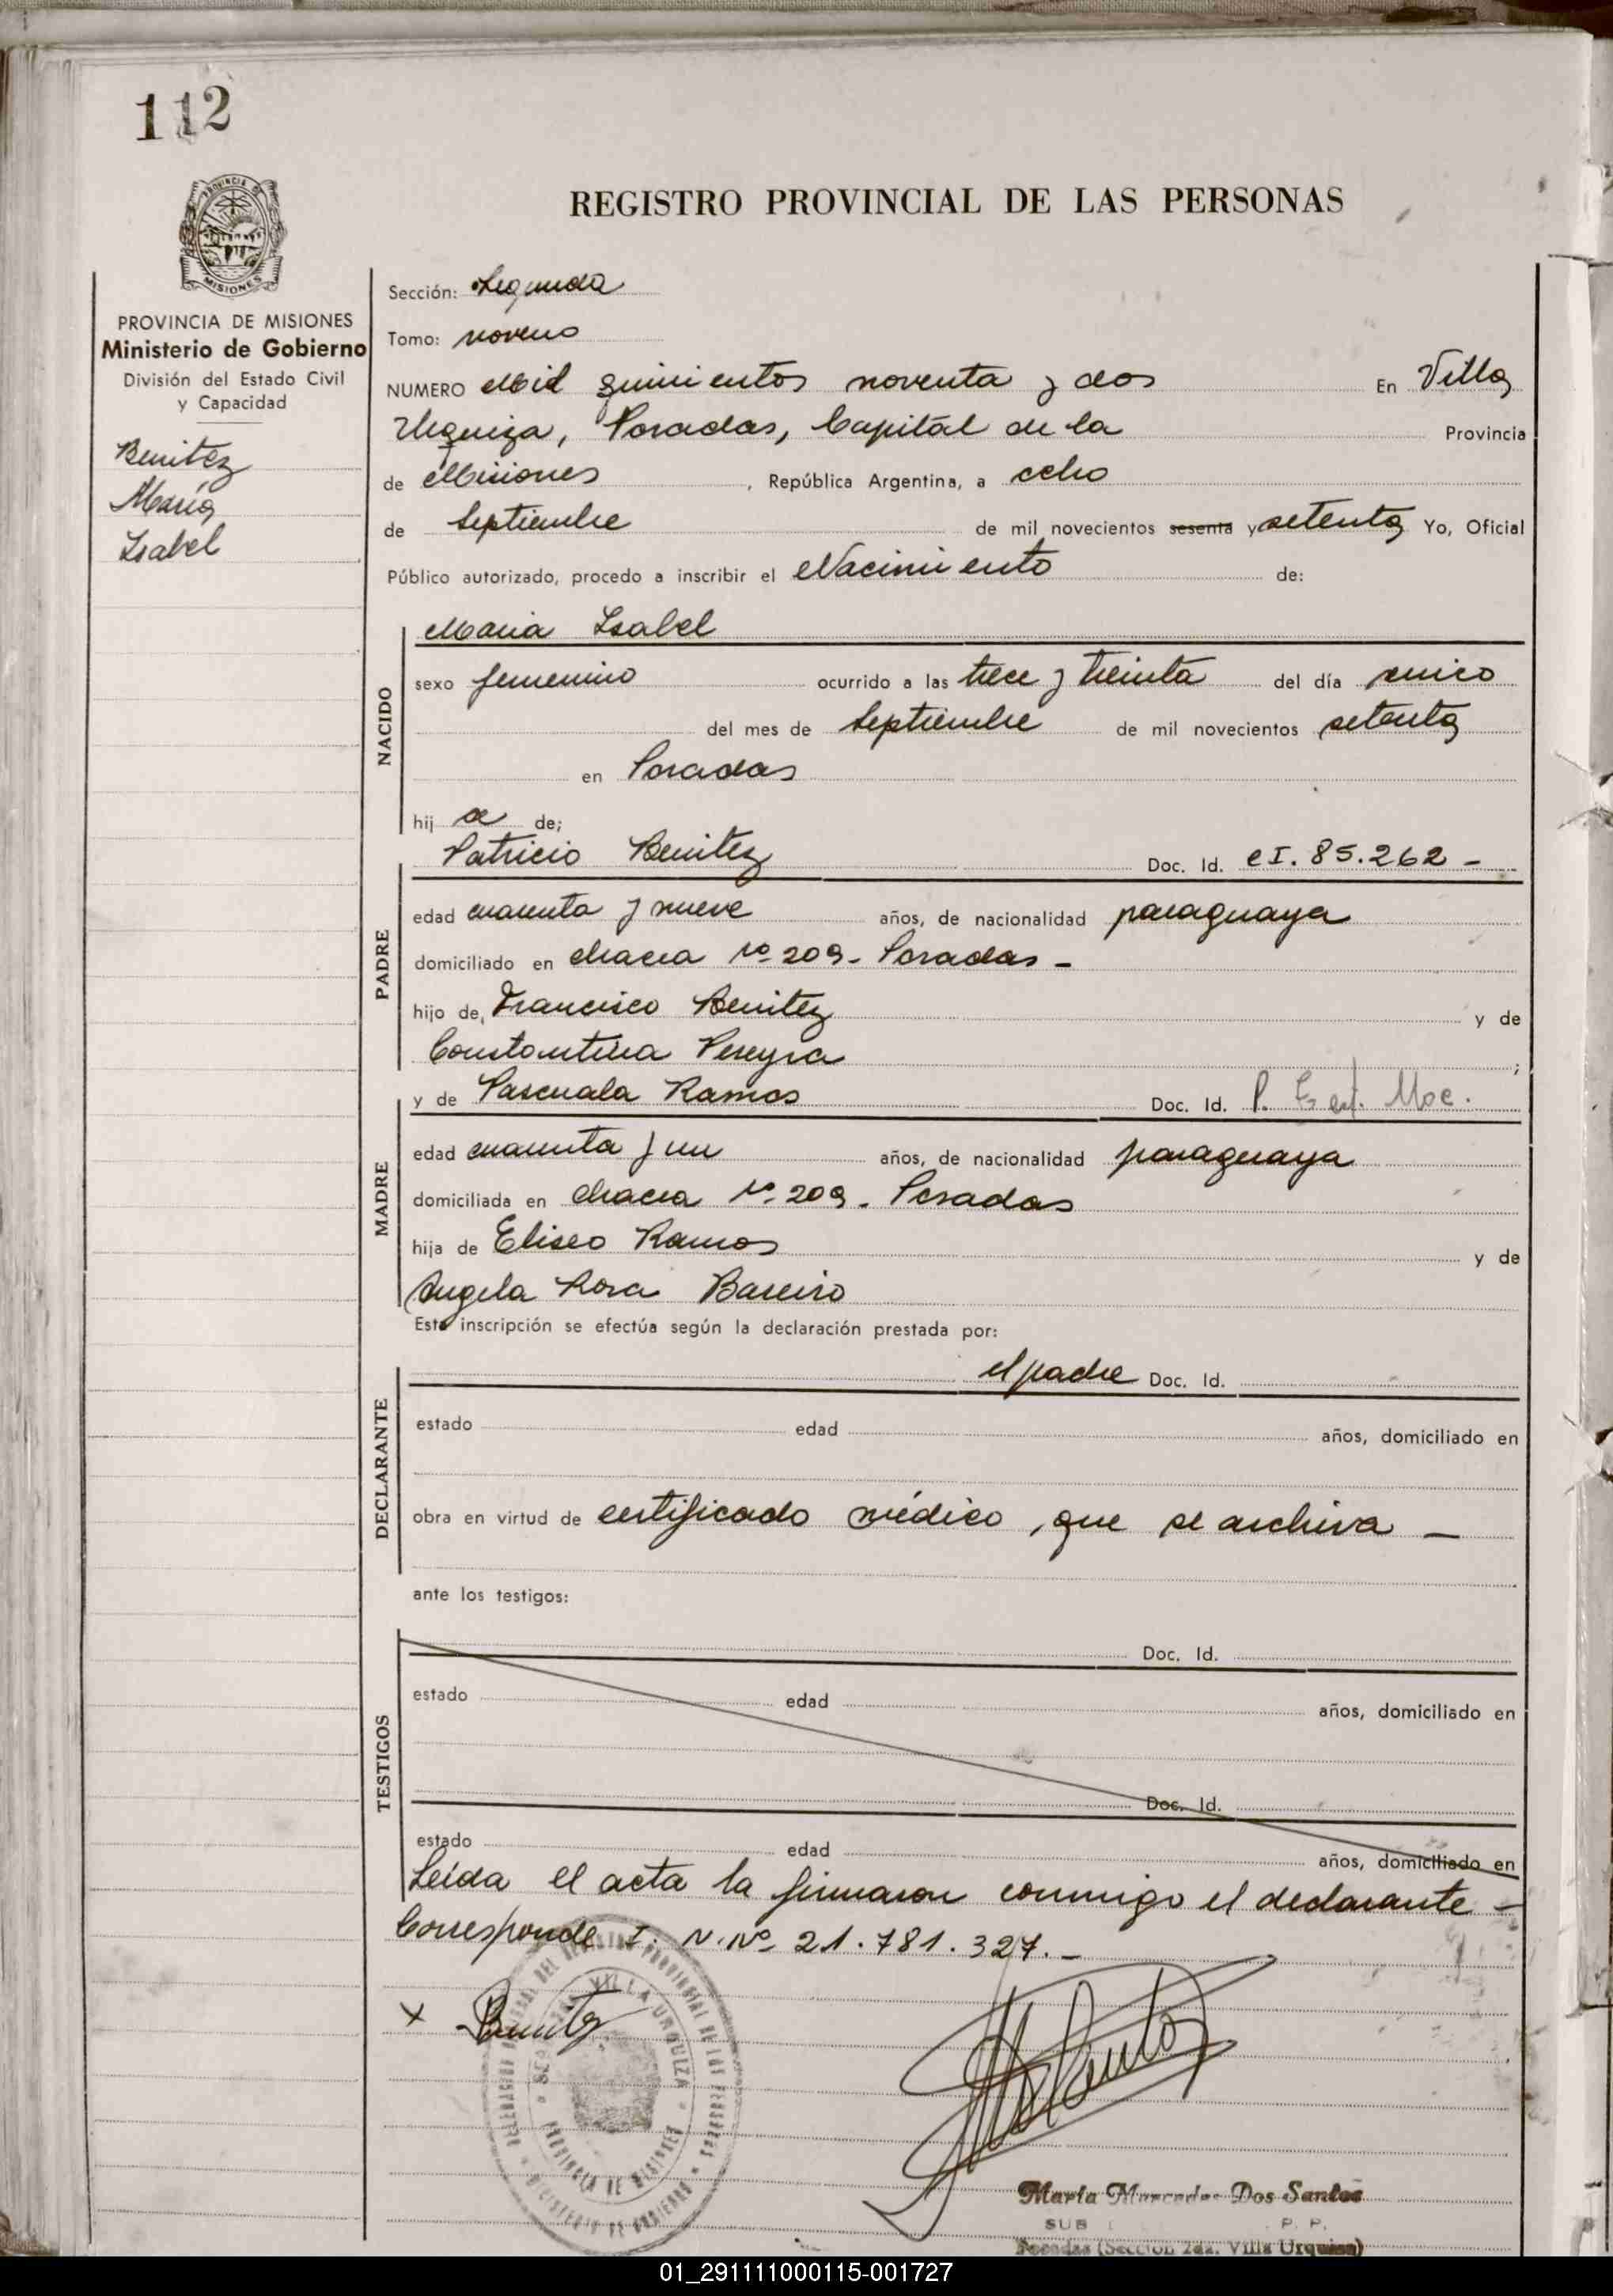 112
PROVINCIA DE
MISIONES
REGISTRO PROVINCIAL DE LAS PERSONAS
PROVINCIA DE MISIONES
Ministerio de Gobierno
División del Estado Civil
y Capacidad
Benitez
María
Isabel
Sección: Segunda
Tomo: noveno
NUMERO Mil quinientos noventa y dos En Villa
Urquiza, Posadas, Capital de la Provincia
de Misiones, República Argentina, a ocho
de Septiembre de mil novecientos sesenta y setenta Yo, Oficial
Público autorizado, procedo a inscribir el Nacimiento de:
NACIDO
Maria Isabel
sexo femenino ocurrido a las trece y treinta del día
del mes de Septiembre de mil novecientos setenta
en Posadas
hij a de;
PADRE
Patricio Benitez Doc. Id. CI. 85.262 -
edad cuarenta y nueve años, de nacionalidad paraguaya
domiciliado en chacra Nº 209 - Posadas -
hijo de, Francisco Benitez y de
Constantina Pereyra ;
MADRE
y de Pascuala Ramos Doc. Id. P.
edad cuarenta y un años, de nacionalidad paraguaya
domiciliada en chacra Nº 209 - Posadas
hija de Eliseo Ramos y de
Angela Rosa Bareiro
Esta inscripción se efectúa según la declaración prestada por:
DECLARANTE
el padre Doc. Id.
estado edad años, domiciliado en
obra en virtud de certificado médico, que se archiva -
ante los testigos:
TESTIGOS
Doc. Id.
estado edad años, domiciliado en
Doc. Id.
estado edad años, domiciliado en
Leída el acta la firmaron conmigo el declarante -
Corresponde I. N. Nº 21.781.327. -
x Benitez
VILLA URQUIZA
PROVINCIA DE MISIONES
MINISTERIO DE GOBIERNO
María Mercedes Dos Santos
SUB P. P.
Posadas (Sección 2da. Villa Urquiza)
01_291111000115-001727